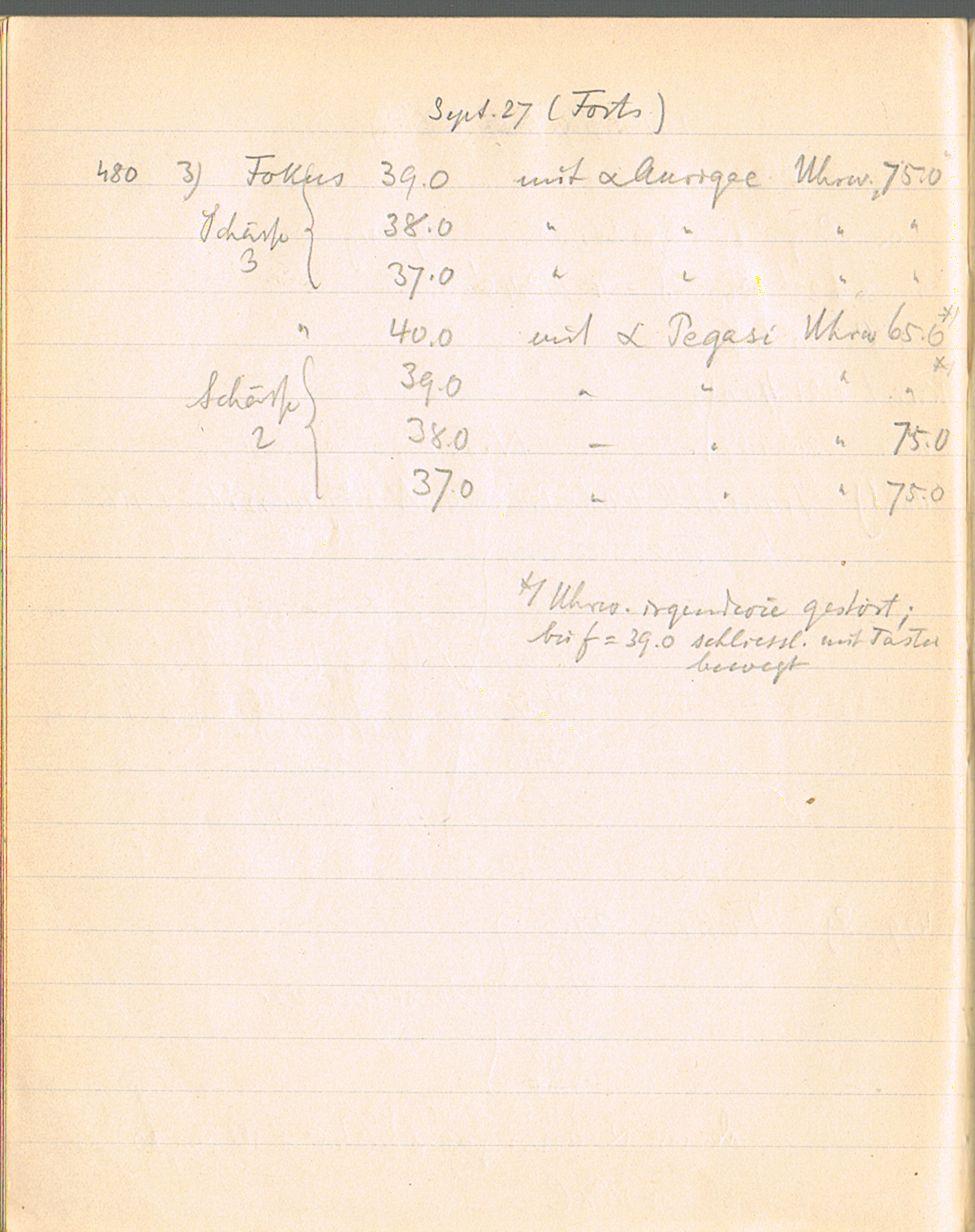 Sept. 27 (Forts.)
480 3) Fokus 39.0 mit α Aurigae Uhrw. 75.0
Schärfe 38.0 " " " "
3 37.0 " " " "
" 40.0 mit α Pegasi Uhrw 65.0 *)
Schärfe 39.0 " " " " *)
2 38.0 – " " 75.0
37.0 " " " 75.0
*) Uhrw. irgendwie gestört;
bei f = 39.0 schliessl. mit Taster
bewegt